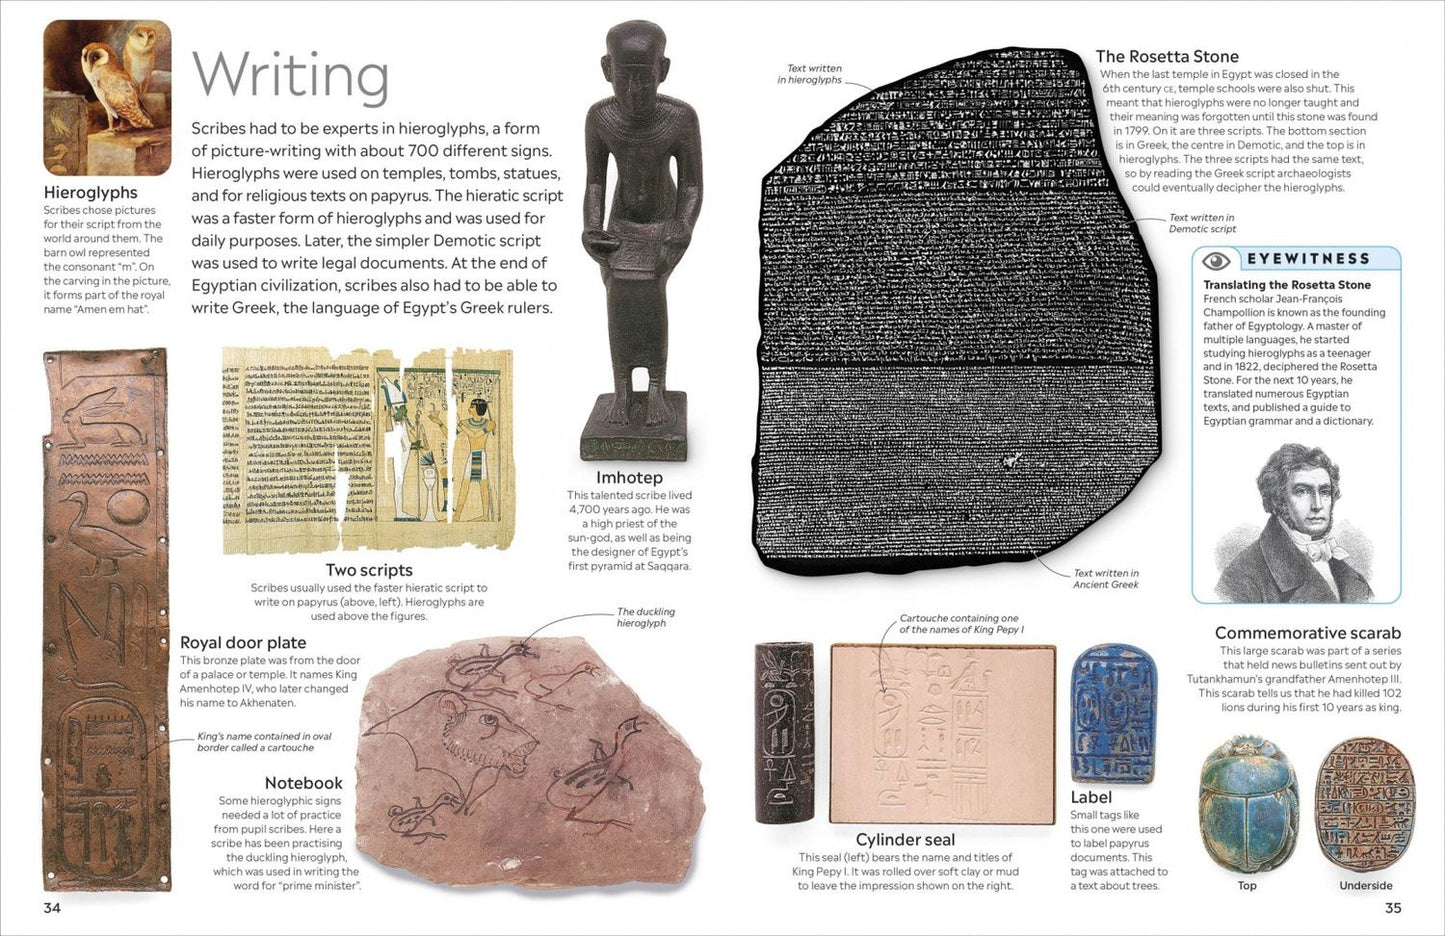 Writing
Scribes had to be experts in hieroglyphs, a form
of picture-writing with about 700 different signs.
Hieroglyphs were used on temples, tombs, statues,
and for religious texts on papyrus. The hieratic script
was a faster form of hieroglyphs and was used for
daily purposes. Later, the simpler Demotic script
was used to write legal documents. At the end of
Egyptian civilization, scribes also had to be able to
write Greek, the language of Egypt's Greek rulers.
Hieroglyphs
Scribes chose pictures
for their script from the
world around them. The
barn owl represented
the consonant “m”. On
the carving in the picture,
it forms part of the royal
name “Amen em hat”.
Two scripts
Scribes usually used the faster hieratic script to
write on papyrus (above, left). Hieroglyphs are
used above the figures.
Imhotep
This talented scribe lived
4,700 years ago. He was
a high priest of the
sun-god, as well as being
the designer of Egypt's
first pyramid at Saqqara.
Royal door plate
This bronze plate was from the door
of a palace or temple. It names King
Amenhotep IV, who later changed
his name to Akhenaten.
King's name contained in oval
border called a cartouche
The duckling
hieroglyph
Notebook
Some hieroglyphic signs
needed a lot of practice
from pupil scribes. Here a
scribe has been practising
the duckling hieroglyph,
which was used in writing the
word for “prime minister”.
34
Text written
in hieroglyphs
The Rosetta Stone
When the last temple in Egypt was closed in the
6th century CE, temple schools were also shut. This
meant that hieroglyphs were no longer taught and
their meaning was forgotten until this stone was found
in 1799. On it are three scripts. The bottom section
is in Greek, the centre in Demotic, and the top is in
hieroglyphs. The three scripts had the same text,
so by reading the Greek script archaeologists
could eventually decipher the hieroglyphs.
Text written in
Demotic script
EYEWITNESS
Translating the Rosetta Stone
French scholar Jean-François
Champollion is known as the founding
father of Egyptology. A master of
multiple languages, he started
studying hieroglyphs as a teenager
and in 1822, deciphered the Rosetta
Stone. For the next 10 years, he
translated numerous Egyptian
texts, and published a guide to
Egyptian grammar and a dictionary.
Text written in
Ancient Greek
Cartouche containing one
of the names of King Pepy I
Cylinder seal
This seal (left) bears the name and titles of
King Pepy I. It was rolled over soft clay or mud
to leave the impression shown on the right.
Label
Small tags like
this one were used
to label papyrus
documents. This
tag was attached to
a text about trees.
Commemorative scarab
This large scarab was part of a series
that held news bulletins sent out by
Tutankhamun's grandfather Amenhotep III.
This scarab tells us that he had killed 102
lions during his first 10 years as king.
Top
Underside
35